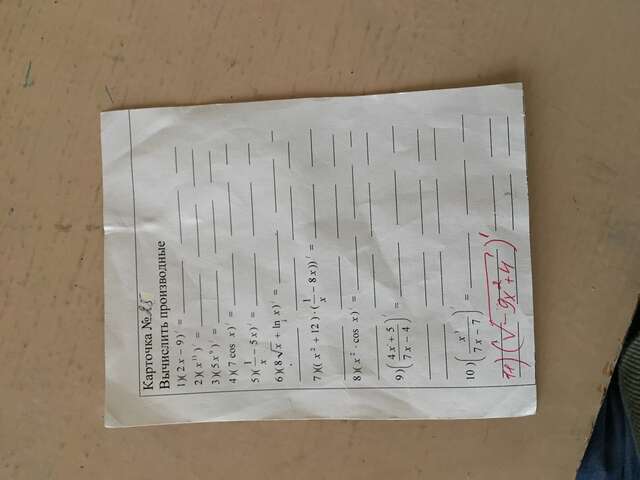 Карточка № 25
Вычислить производные
1)(2x − 9)′ =
2)(x¹¹)′ =
3)(5x⁹)′ =
4)(7 cos x)′ =
5)(1/x − 5x)′ =
6)(8√x + ln x)′ =
7)((x² + 12)·(1/x − 8x))′ =
8)(x² · cos x)′ =
9)((4x + 5)/(7x − 4))′ =
10)(x/(7x − 7))′ =
11)(√−9x² + 4)′